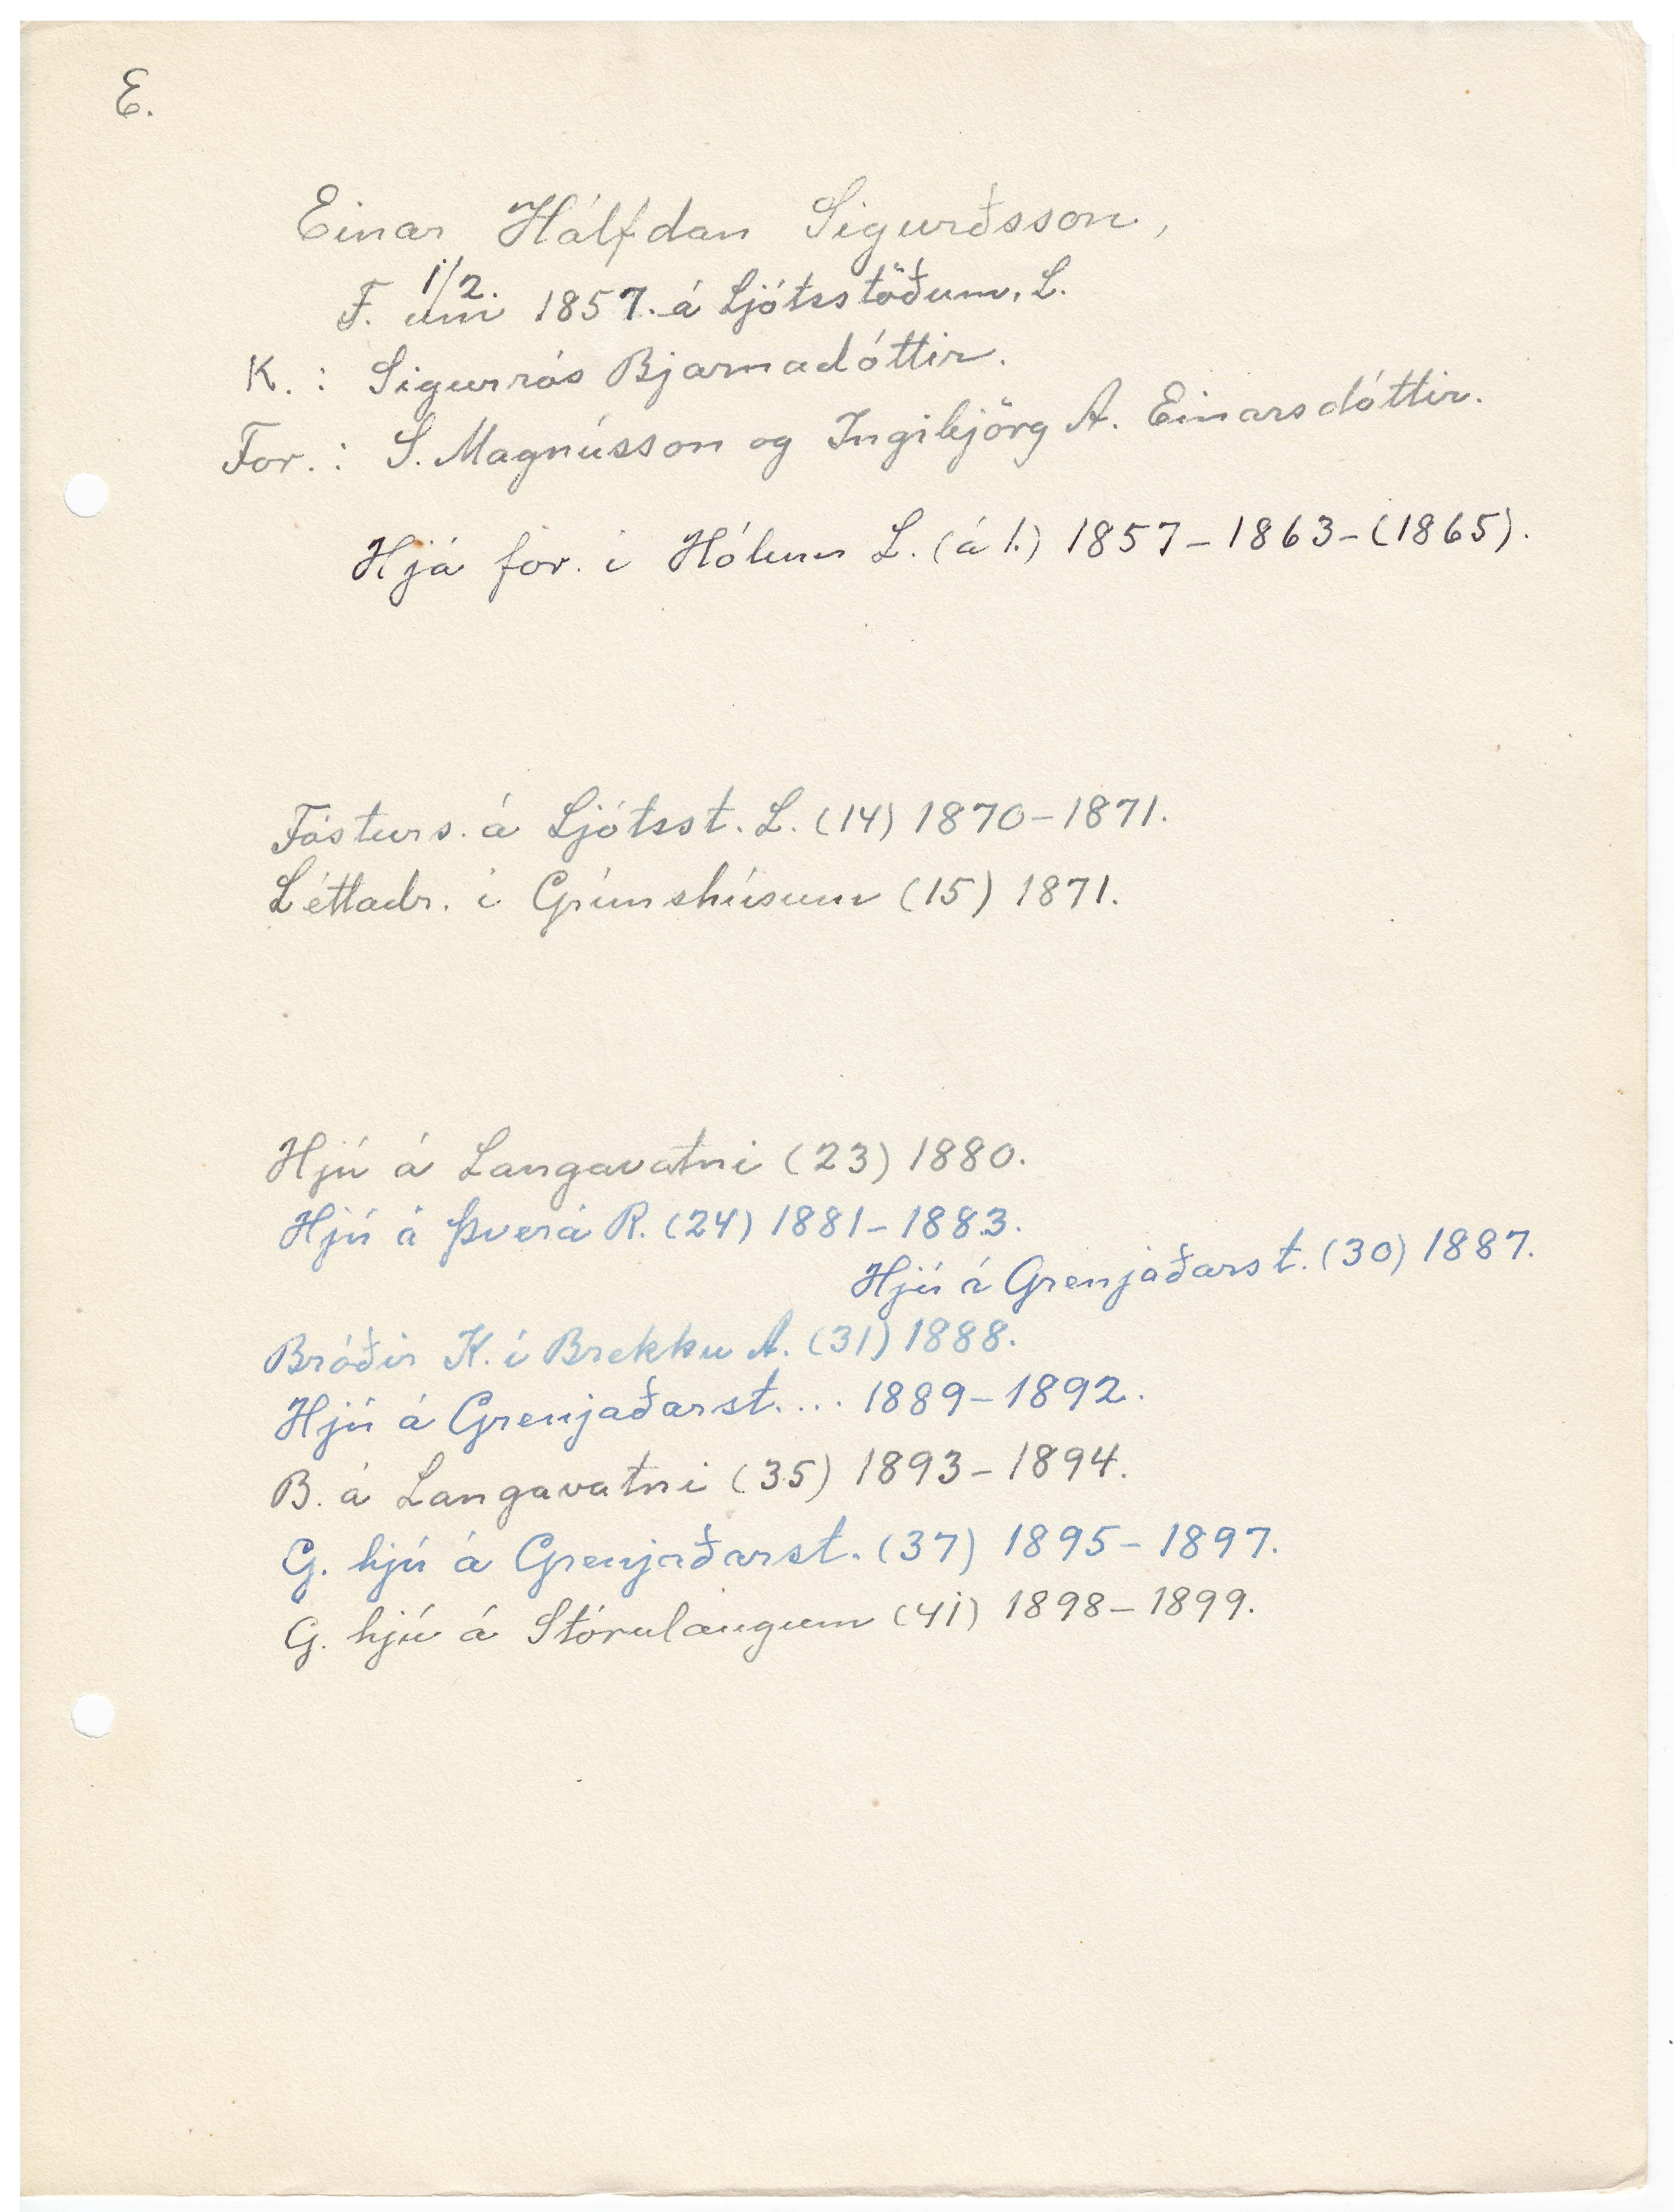 E.
Einar Hálfdan Sigurðsson,
1/2.
F. um 1857. á Ljótsstöðum, L.
K. : Sigurrós Bjarnadóttir.
For. : S. Magnússon og Ingibjörg A. Einarsdóttir.
Hjá for. í Hólum L. (á 1.) 1857-1863-(1865).
Fósturs. á Ljótsst. L. (14) 1870-1871.
Léttadr. í Grímshúsum (15) 1871.
Hjú á Langavatni (23) 1880.
Hjú á Þverá R. (24) 1881-1883.
Hjú á Grenjaðarst. (30) 1887.
Bróðir K. í Brekku A. (31) 1888.
Hjú á Grenjaðarst.... 1889-1892.
B. á Langavatni (35) 1893-1894.
G. hjú á Grenjaðarst. (37) 1895-1897.
G. hjú á Stórulaugum (41) 1898-1899.